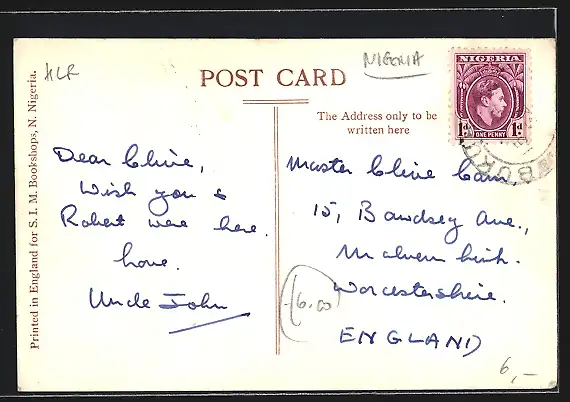 HLR
NIGERIA
POST CARD
NIGERIA
1d 1d
ONE PENNY
The Address only to be
written here
Dear Clive,
Wish you &
Robert were here.
Love.
Uncle John
Master Clive Cam,
15, Bawdsey Ave.,
Malvern Link.
Worcestershire.
ENGLAND
6.00
6,-
Printed in England for S. I. M. Bookshops, N. Nigeria.